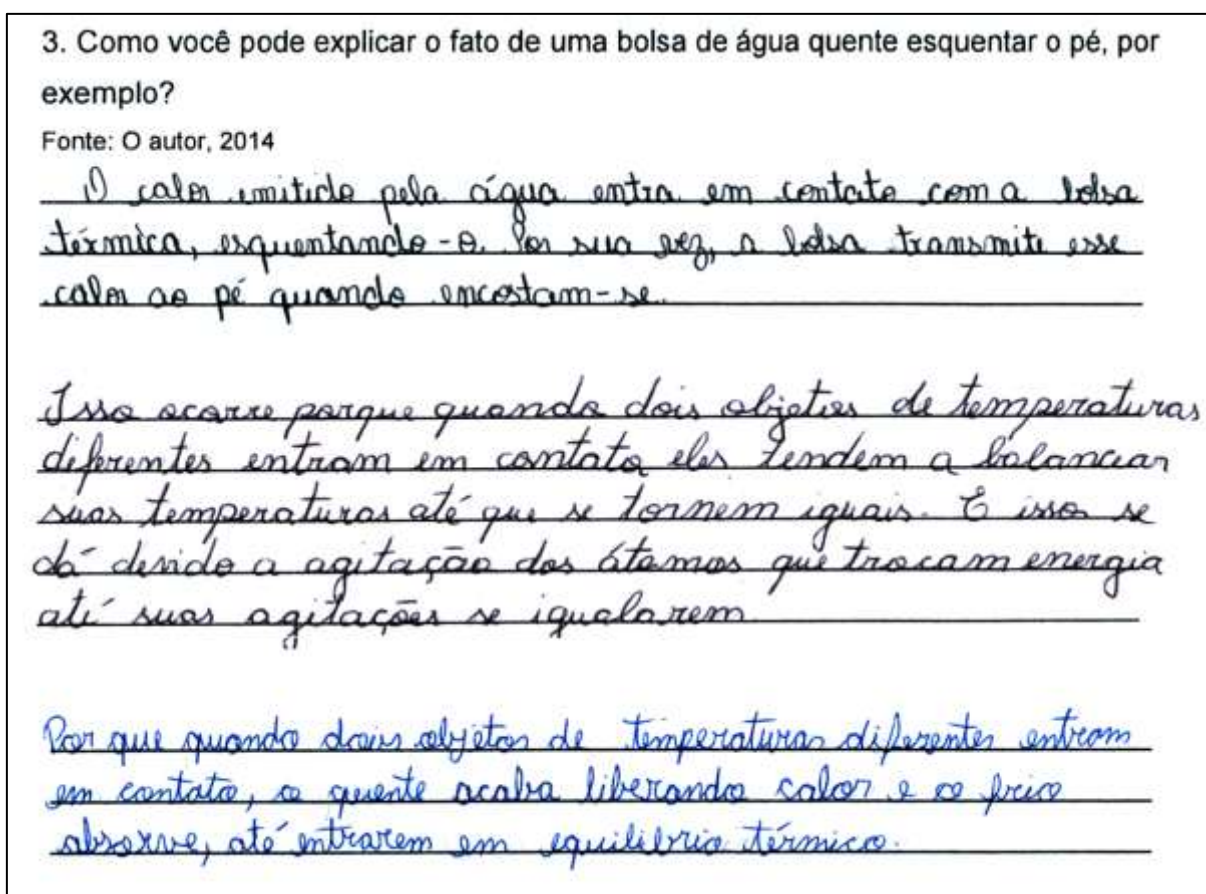 3. Como você pode explicar o fato de uma bolsa de água quente esquentar o pé, por
exemplo?
Fonte: O autor, 2014
O calor emitido pela água entra em contato com a bolsa
térmica, esquentando-a. Por sua vez, a bolsa transmite esse
calor ao pé quando encostam-se.
Isso ocorre porque quando dois objetos de temperaturas
diferentes entram em contato eles tendem a balancear
suas temperaturas até que se tornem iguais. E isso se
dá devido a agitação dos átomos que trocam energia
até suas agitações se igualarem
Por que quando dois objetos de temperaturas diferentes entram
em contato, o quente acaba liberando calor e o frio
absorve, até entrarem em equilíbrio térmico.